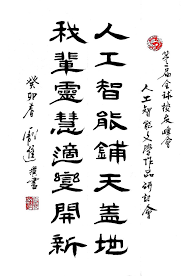 第三届全球校友峰會
人工智能文學作品研討會
人工智能鋪天盖地
我輩靈慧適變開新
癸卯春
撰書